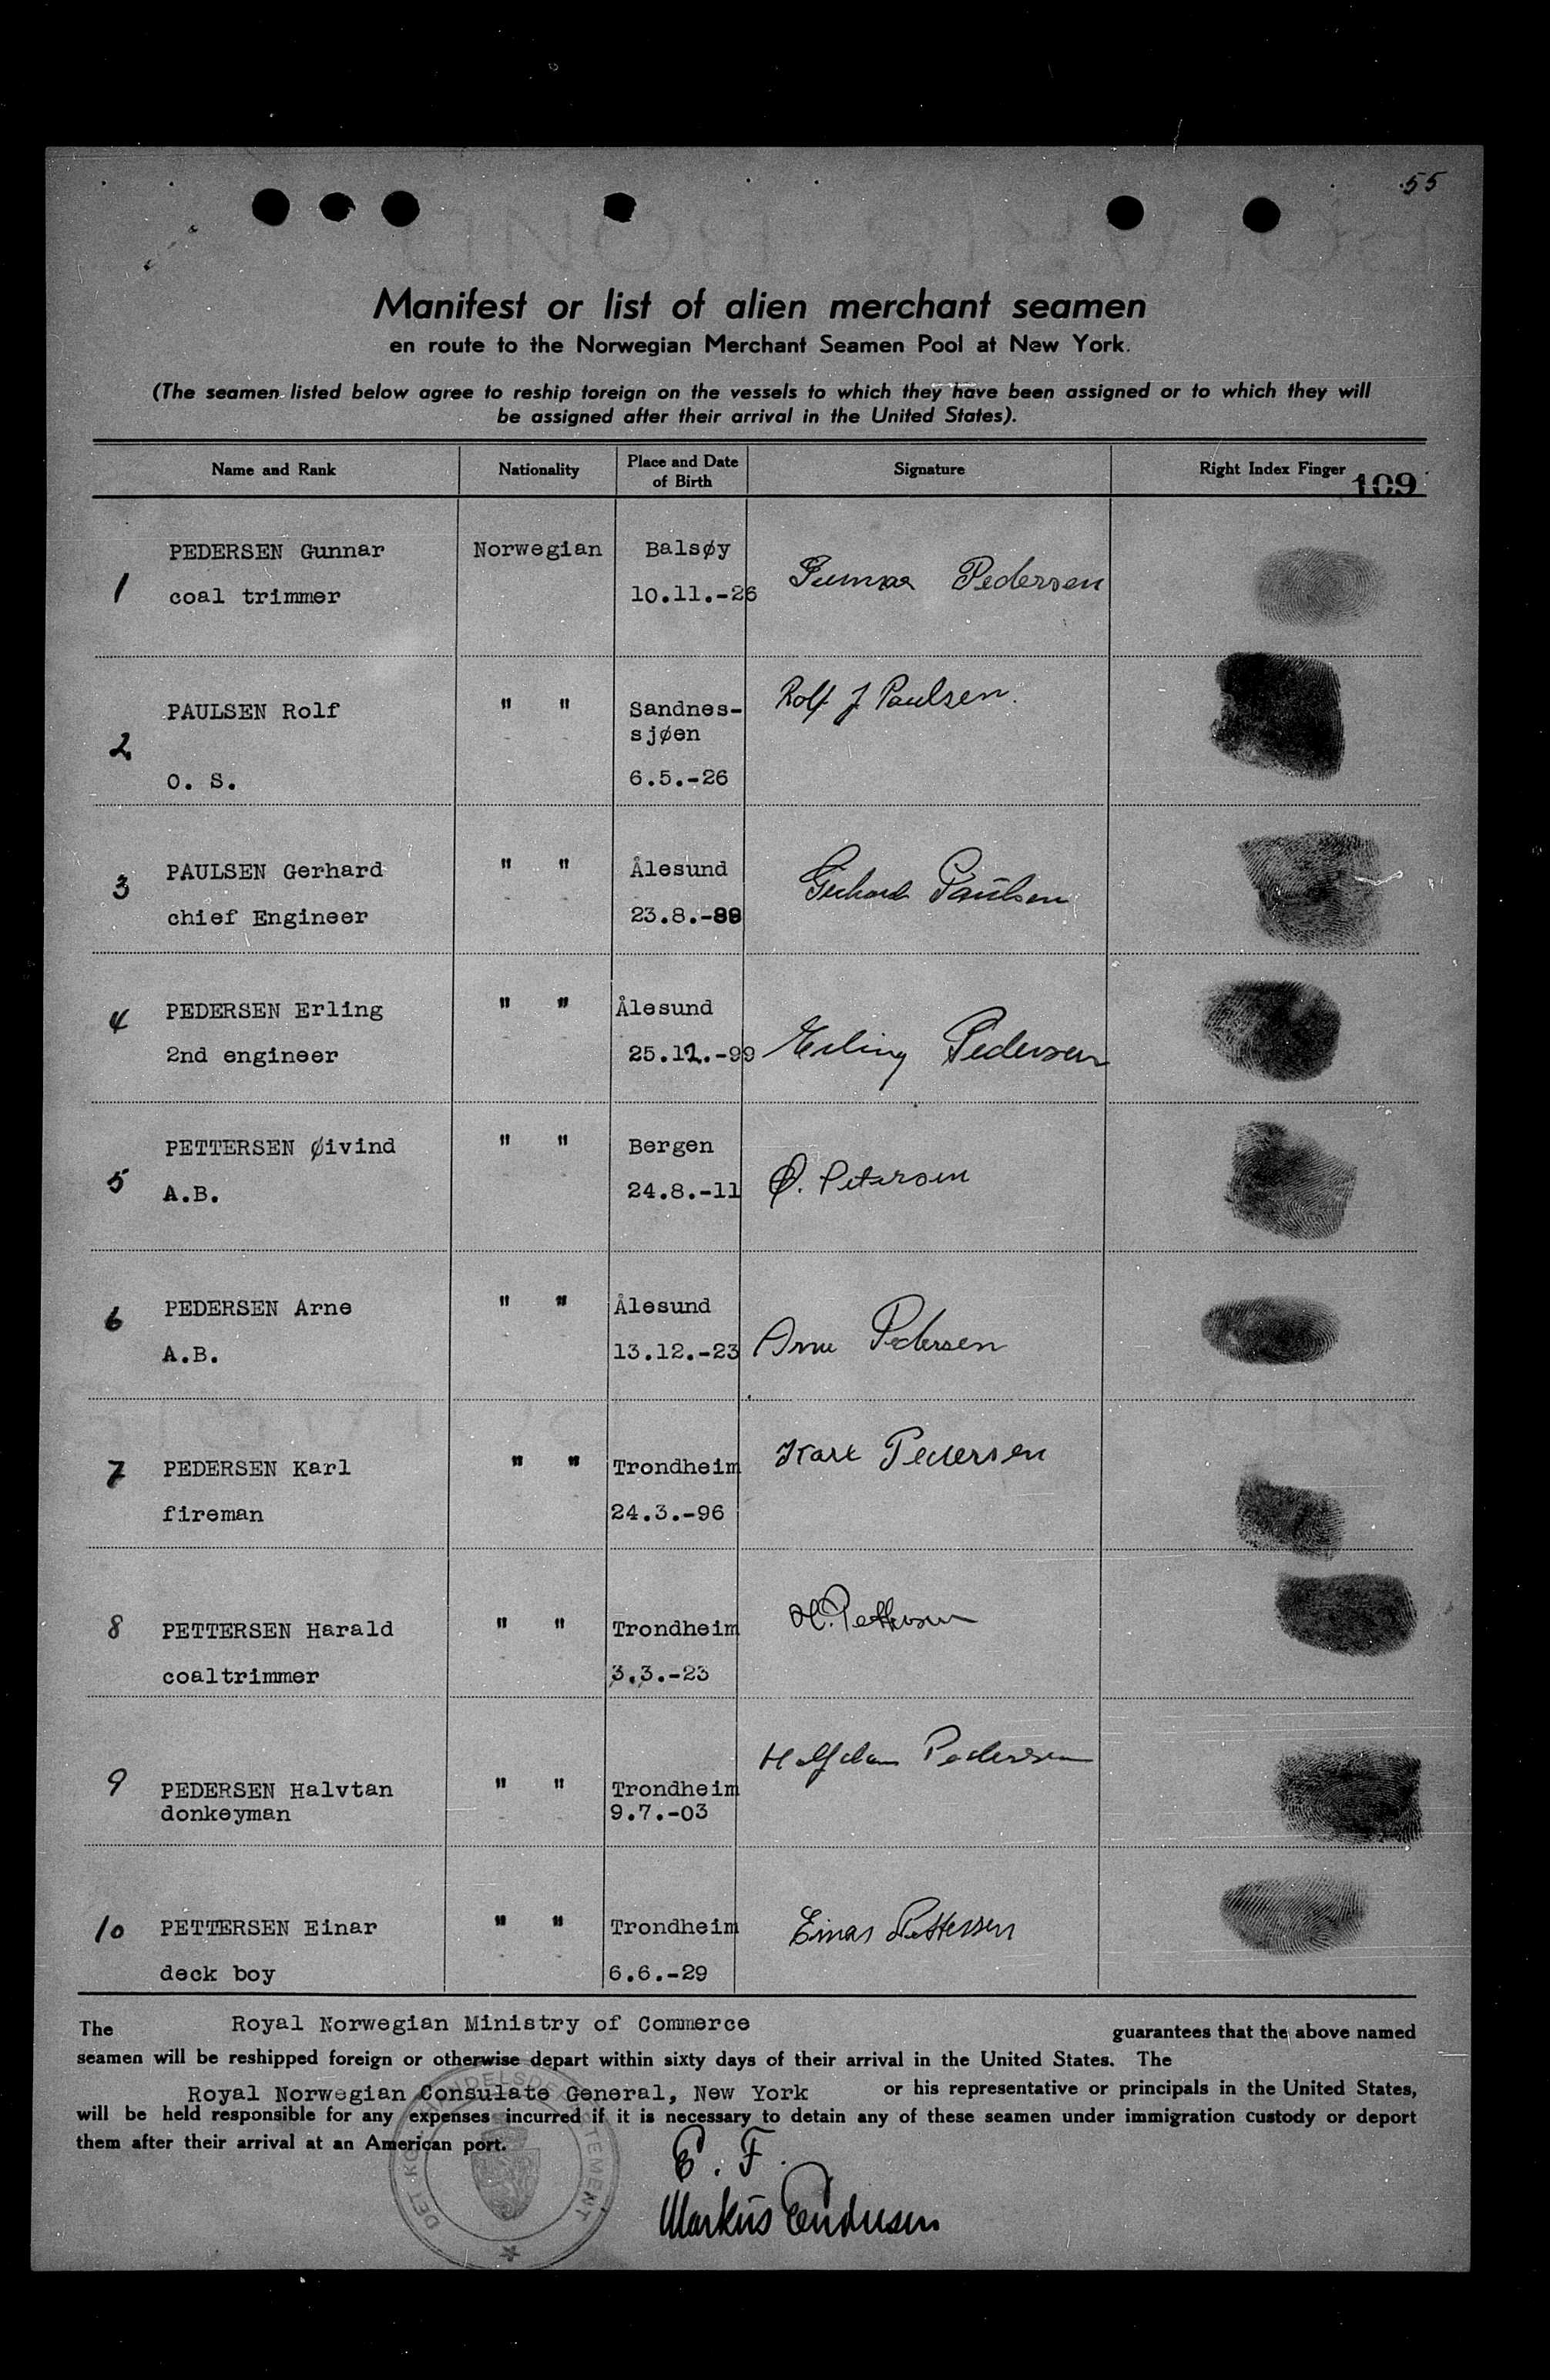 55
Manifest or list of alien merchant seamen
en route to the Norwegian Merchant Seamen Pool at New York.
(The seamen listed below agree to reship foreign on the vessels to which they have been assigned or to which they will
be assigned after their arrival in the United States).
Name and Rank Nationality Place and Date of Birth Signature Right Index Finger 109
1 PEDERSEN Gunnar Norwegian Balsøy Gunnar Pedersen
coal trimmer 10.11.-26
2 PAULSEN Rolf " " Sandnes-
sjøen Rolf J Paulsen.
O. S. 6.5.-26
3 PAULSEN Gerhard " " Ålesund Gerhard Paulsen
chief Engineer 23.8.-88
4 PEDERSEN Erling " " Ålesund Erling Pedersen
2nd engineer 25.12.-99
5 PETTERSEN Øivind " " Bergen Ø. Petersen
A.B. 24.8.-11
6 PEDERSEN Arne " " Ålesund Arne Pedersen
A.B. 13.12.-23
7 PEDERSEN Karl " " Trondheim Karl Pedersen
fireman 24.3.-96
8 PETTERSEN Harald " " Trondheim H. Pettersen
coaltrimmer 3.3.-23
9 PEDERSEN Halvtan " " Trondheim Halfdan Pedersen
donkeyman 9.7.-03
10 PETTERSEN Einar " " Trondheim Einar Pettersen
deck boy 6.6.-29
The Royal Norwegian Ministry of Commerce guarantees that the above named
seamen will be reshipped foreign or otherwise depart within sixty days of their arrival in the United States. The
Royal Norwegian Consulate General, New York or his representative or principals in the United States,
will be held responsible for any expenses incurred if it is necessary to detain any of these seamen under immigration custody or deport
them after their arrival at an American port.
DET KGL. HANDELSDEPARTEMENT
E. F.
Markus